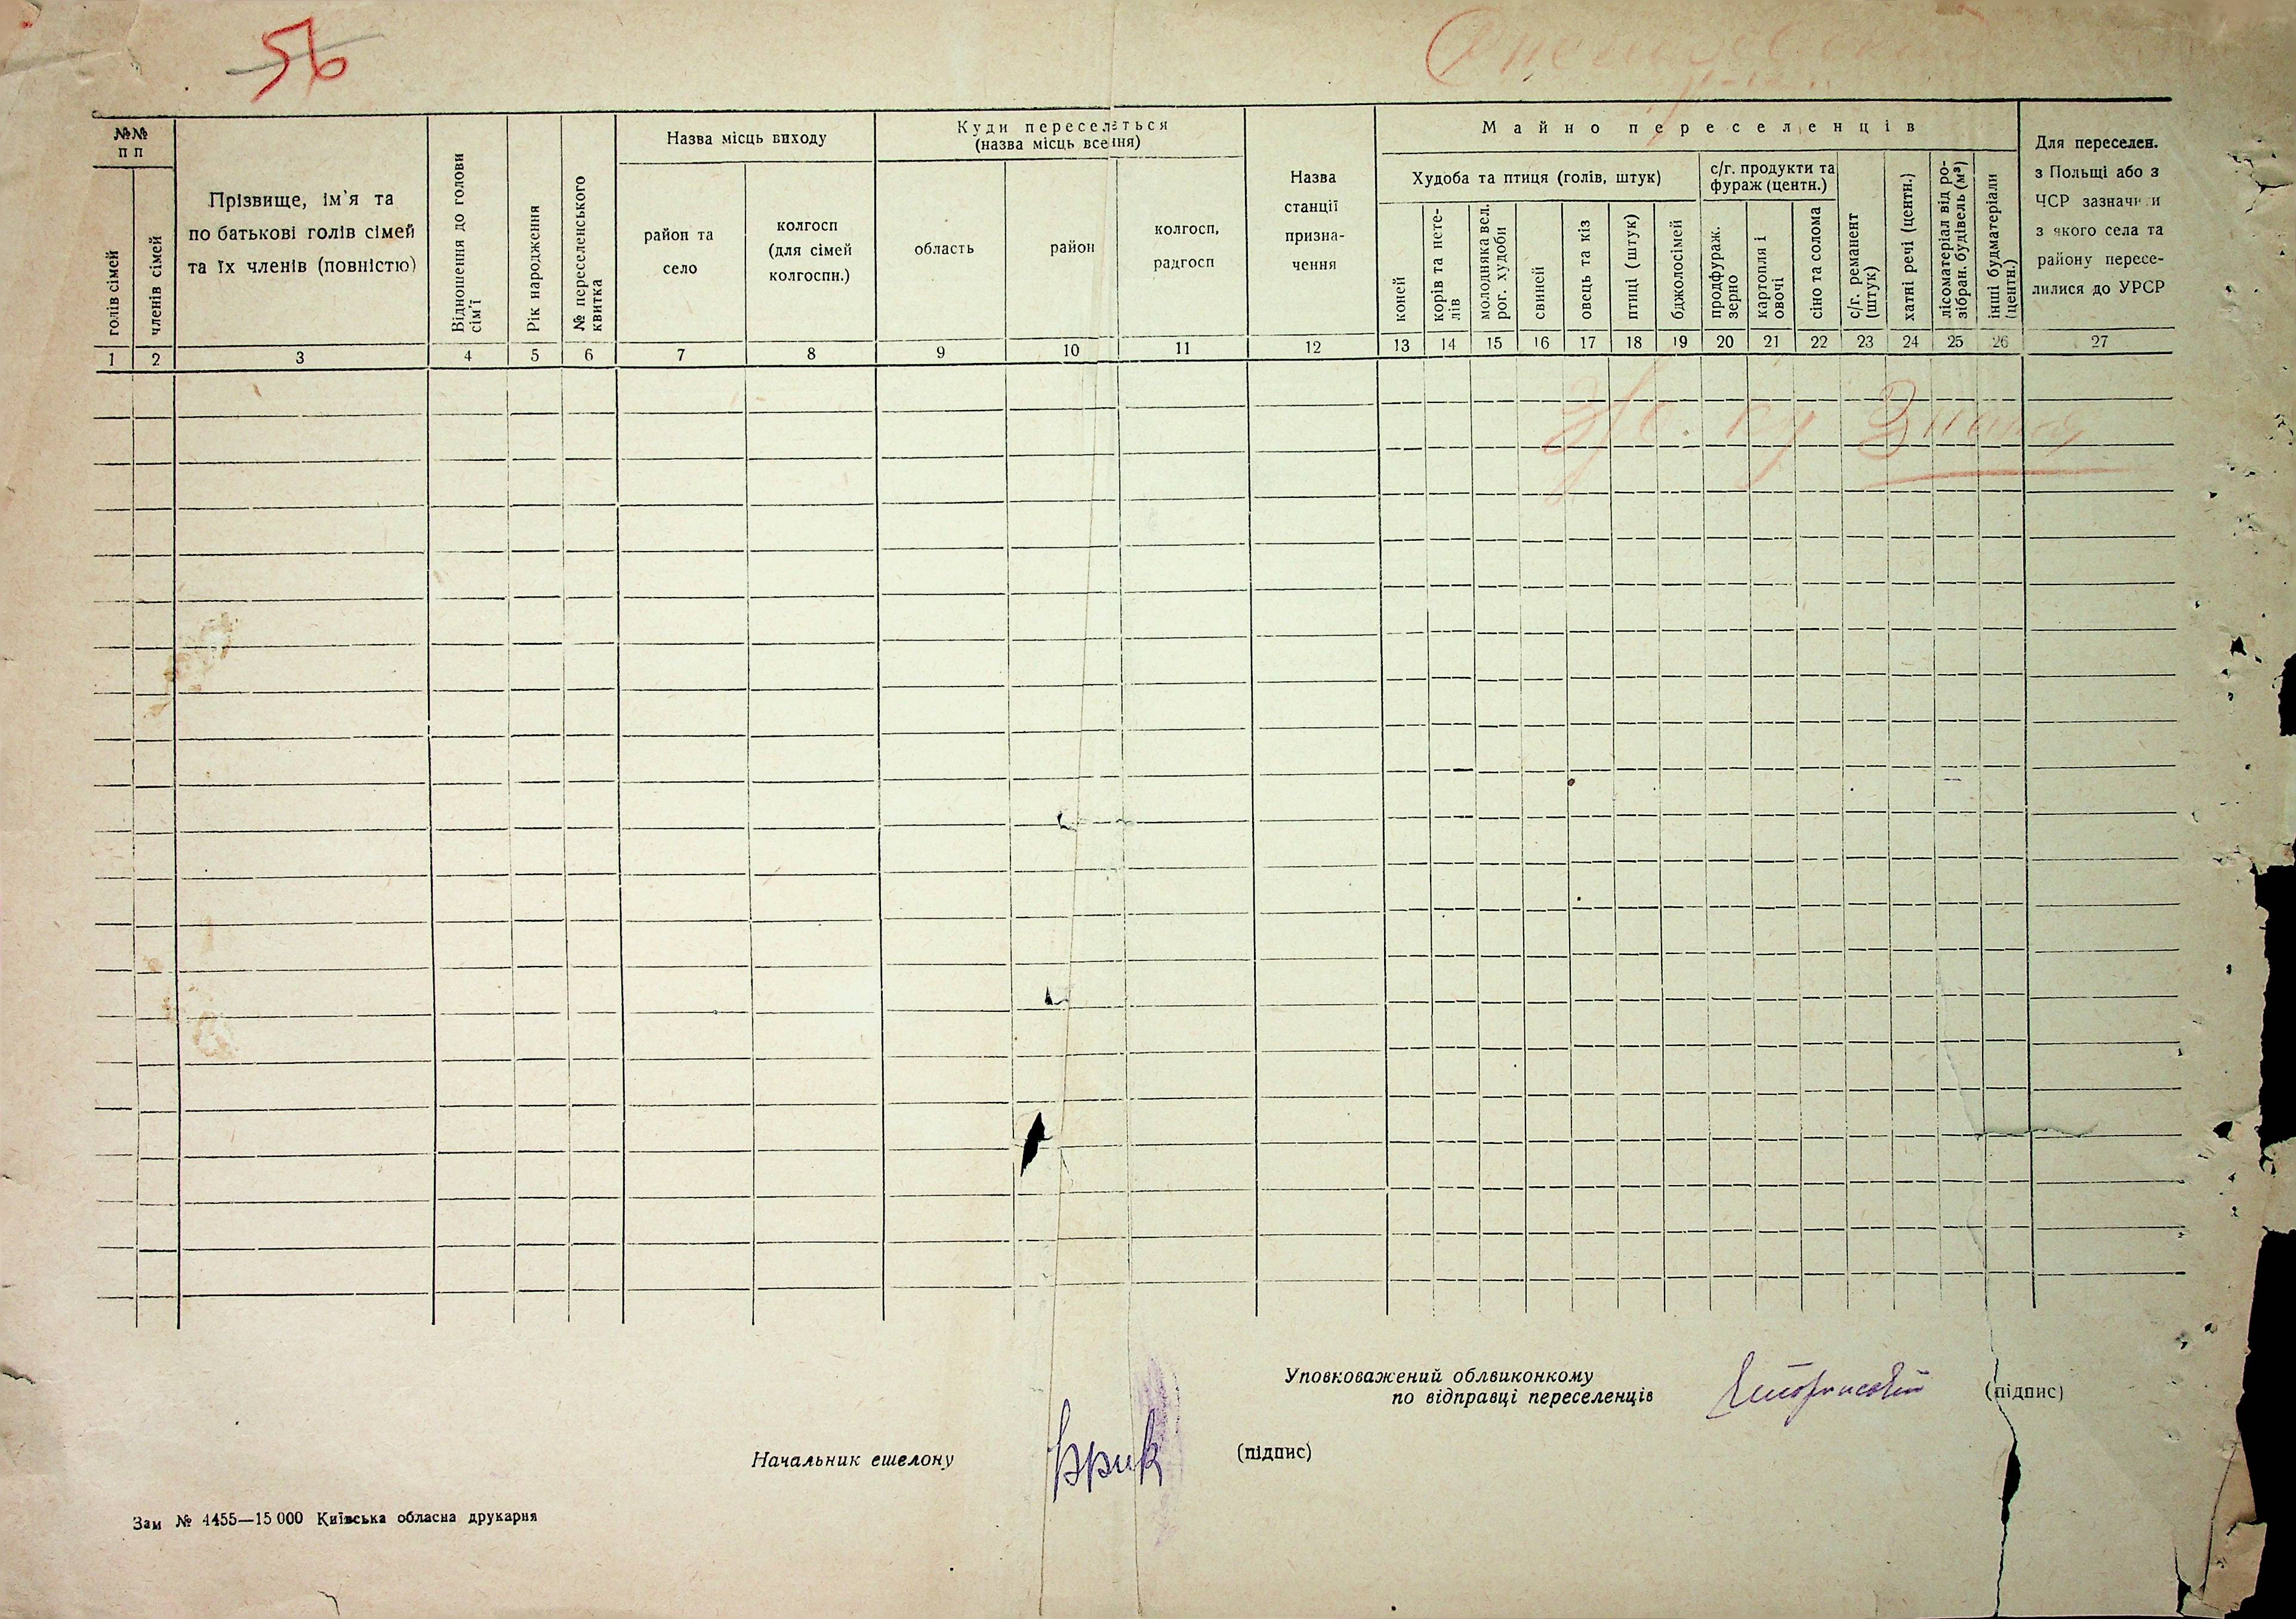 56
№№ п п
голів сімей
членів сімей
Прізвище, ім'я та
по батькові голів сімей
та їх членів (повністю)
Відношення до голови
сім'ї
Рік народження
№ переселенського
квитка
Назва місць виходу
район та
село
колгосп
(для сімей
колгоспн.)
Куди переселяється
(назва місць всення)
область
район
колгосп,
радгосп
Назва
станції
призна-
чення
Майно переселенців
Худоба та птиця (голів, штук)
коней
корів та нете-
лів
молодняка вел.
рог. худоби
свиней
овець та кіз
птиці (штук)
бджолосімей
с/г. продукти та
фураж (центн.)
продфураж.
зерно
картопля і
овочі
сіно та солома
с/г. реманент
(штук)
хатні речі (центн.)
лісоматеріал від ро-
зібран. будівель (м³)
інші будматеріали
(центн.)
Для переселен.
з Польщі або з
ЧСР зазначити
з якого села та
району пересе-
лилися до УРСР
1 2 3 4 5 6 7 8 9 10 11 12 13 14 15 16 17 18 19 20 21 22 23 24 25 26 27
Уповковажений облвиконкому
по відправці переселенців (підпис)
Начальник ешелону Брик (підпис)
Зам № 4455—15 000 Київська обласна друкарня